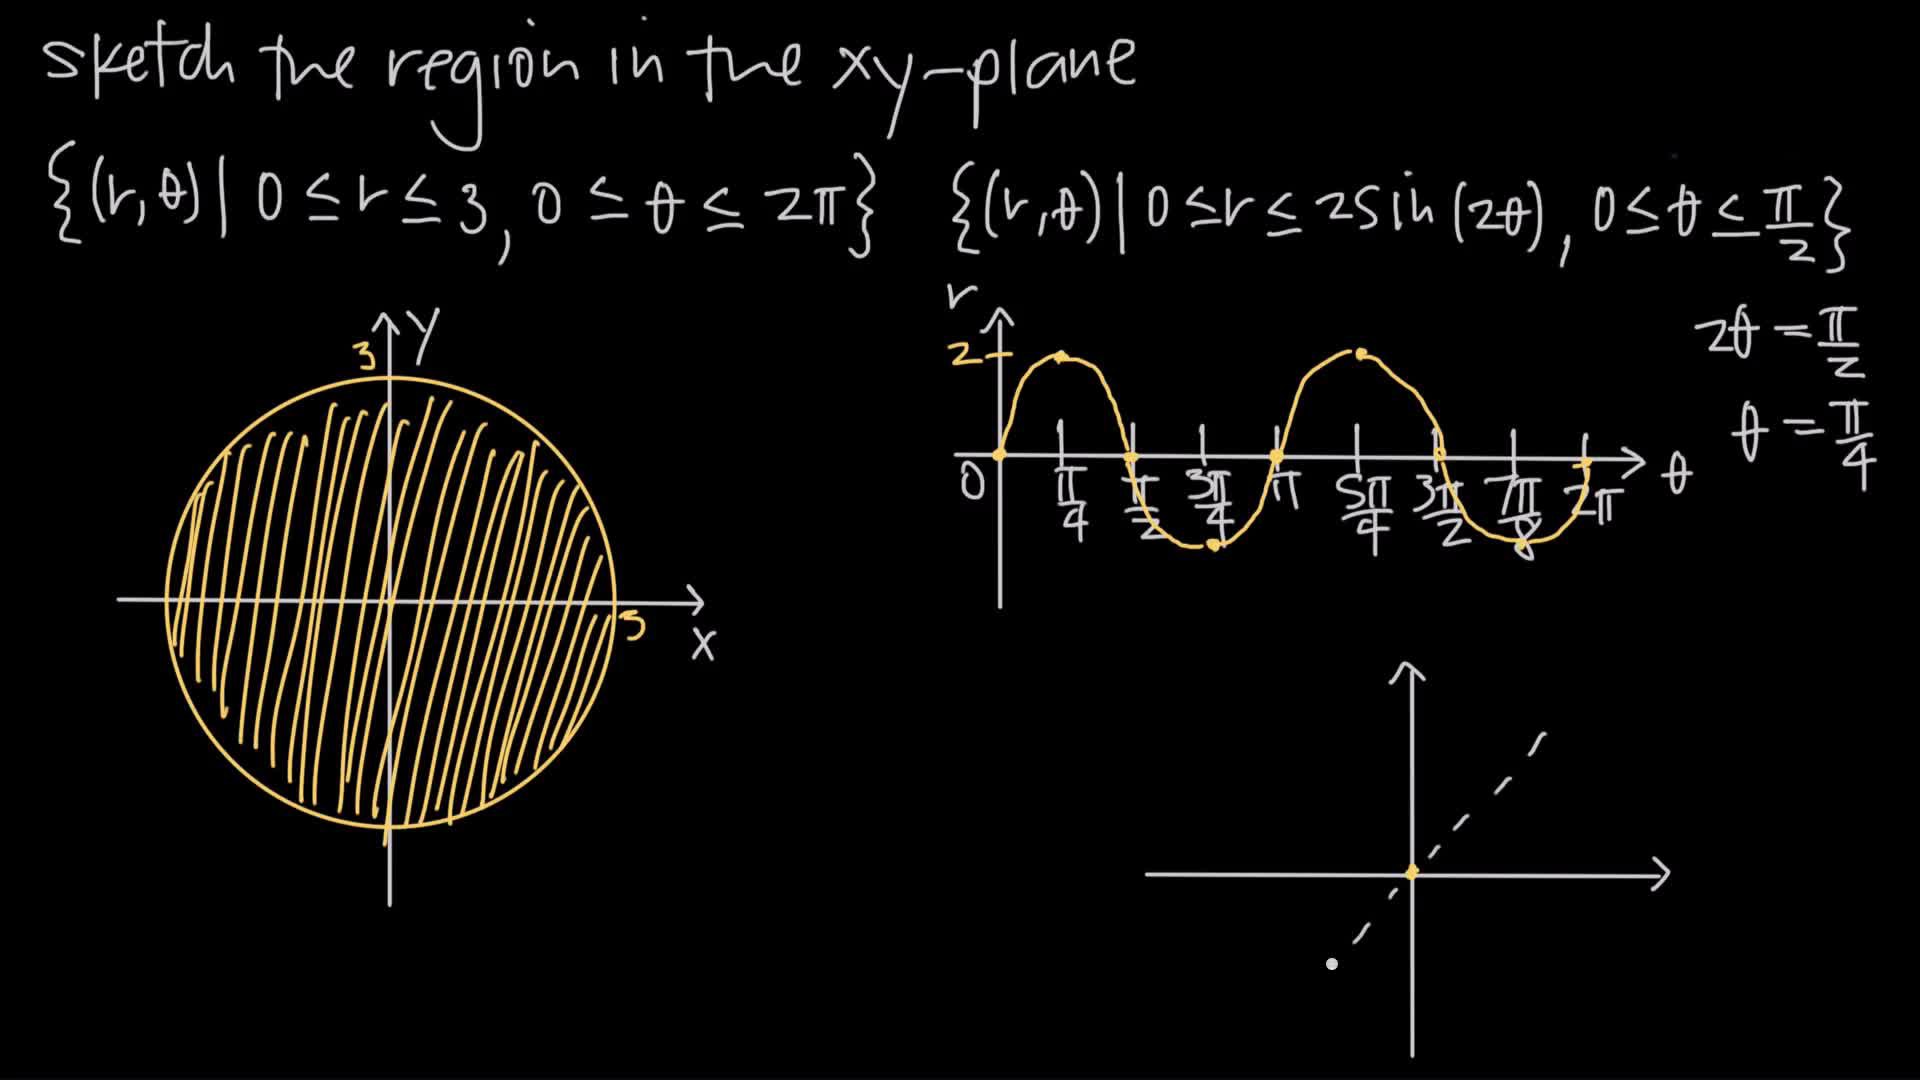 sketch the region in the xy-plane
{(r, θ) | 0 ≤ r ≤ 3, 0 ≤ θ ≤ 2π}
{(r, θ) | 0 ≤ r ≤ 2sin(2θ), 0 ≤ θ ≤ π/2}
y
3
3
x
r
2
0
π/4
π/2
3π/4
π
5π/4
3π/2
7π/8
2π
θ
2θ = π/2
θ = π/4